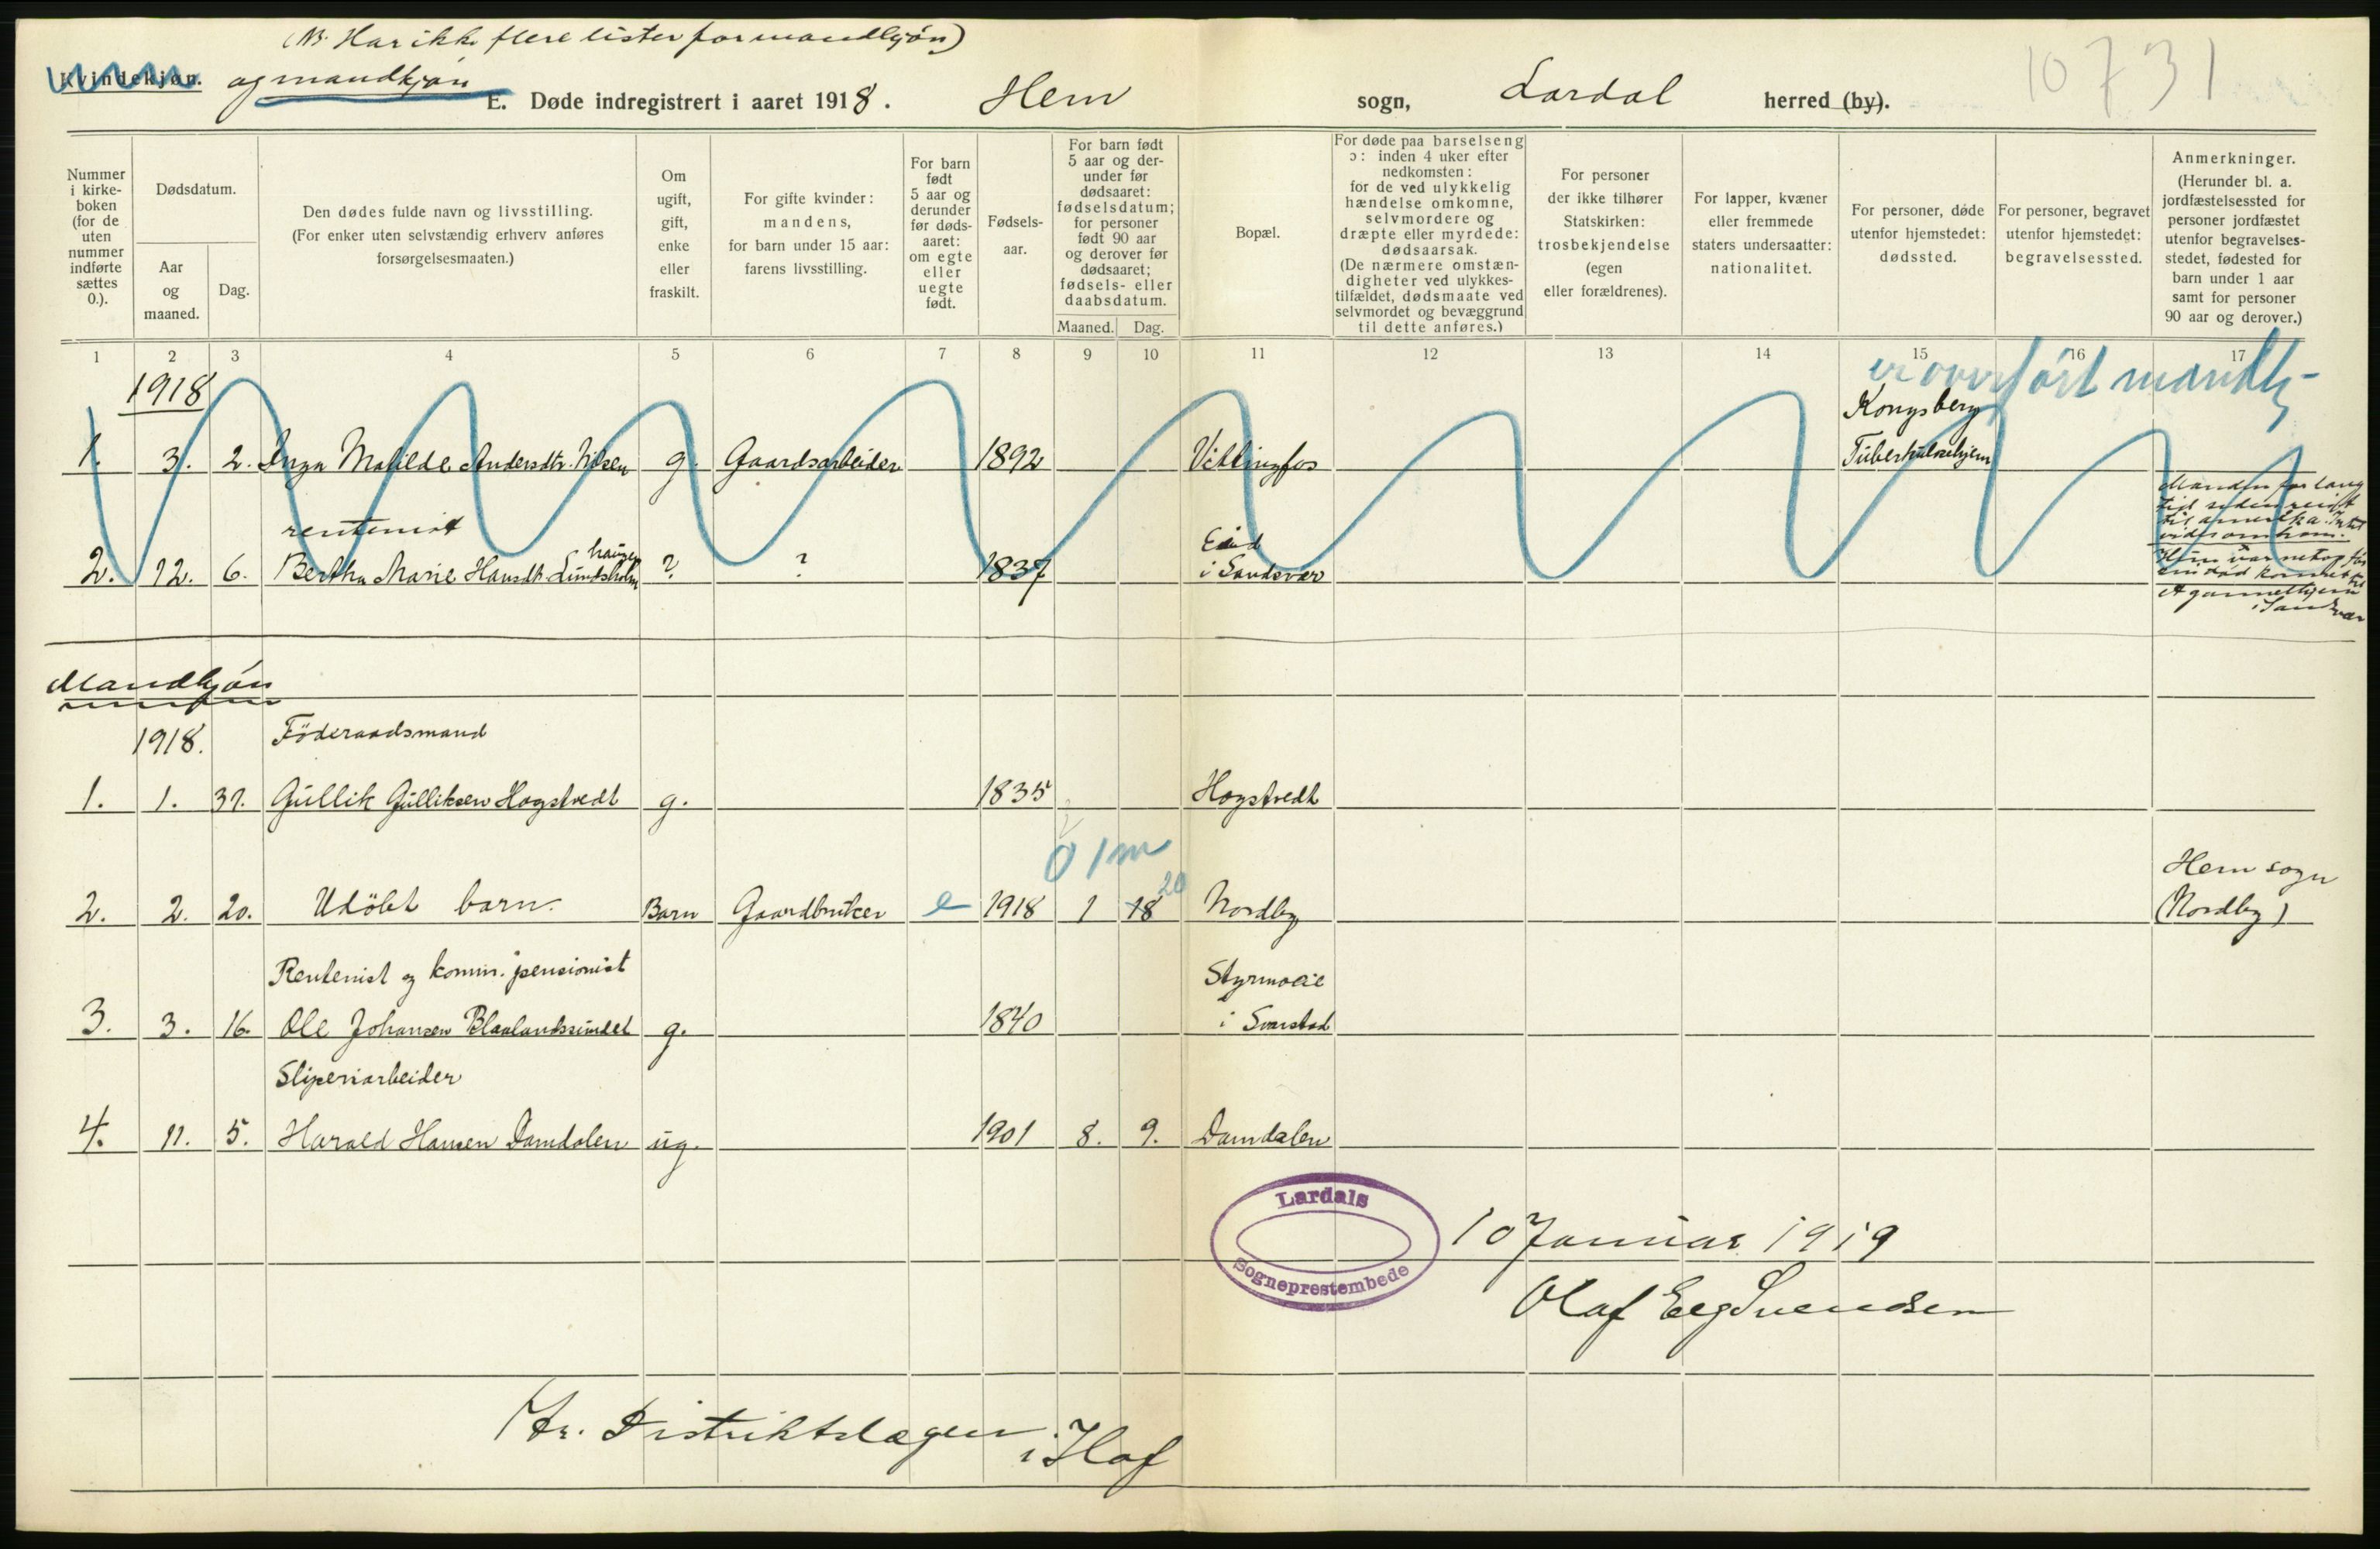 (NB. Har ikke flere lister for mandkjøn)
Kvindekjøn. og mandkjøn
10731
E. Døde indregistrert i aaret 1918. Hem sogn, Lardal herred (by).
Nummer i kirkeboken (for de uten nummer indførte sættes 0.).
Dødsdatum.
Aar og maaned.
Dag.
Den dødes fulde navn og livsstilling.
(For enker uten selvstændig erhverv anføres forsørgelsesmaaten.)
Om ugift, gift, enke eller fraskilt.
For gifte kvinder: mandens, for barn under 15 aar: farens livsstilling.
For barn født 5 aar og derunder før dødsaaret: om egte eller uegte født.
Fødselsaar.
For barn født 5 aar og derunder før dødsaaret: fødselsdatum; for personer født 90 aar og derover før dødsaaret; fødsels- eller daabsdatum.
Maaned. Dag.
Bopæl.
For døde paa barselseng ɔ: inden 4 uker efter nedkomsten: for de ved ulykkelig hændelse omkomne, selvmordere og dræpte eller myrdede: dødsaarsak.
(De nærmere omstændigheter ved ulykkestilfældet, dødsmaate ved selvmordet og bevæggrund til dette anføres.)
For personer der ikke tilhører Statskirken: trosbekjendelse (egen eller forældrenes).
For lapper, kvæner eller fremmede staters undersaatter: nationalitet.
For personer, døde utenfor hjemstedet: dødssted.
For personer, begravet utenfor hjemstedet: begravelsessted.
Anmerkninger.
(Herunder bl. a. jordfæstelsessted for personer jordfæstet utenfor begravelsesstedet, fødested for barn under 1 aar samt for personer 90 aar og derover.)
1 2 3 4 5 6 7 8 9 10 11 12 13 14 15 16 17
er overført mandkj-
1918
Kongsberg
1. 3. 2. Inga Matilde Andersdtr. Nilsen g. Gaardsarbeider 1892 Vittingfos Tuberkulosehjem
Manden for lang
tid siden reist
til amerika. Intet
vides om ham.
rentenist
haugen
Eid
2. 12. 6. Bertha Marie Hansdt. Lundsholm ? ? 1837 i Sandsvær
Hun var netop før
sin død kommet til
gamlehjem
i Sandsvær
Mandkjøn
1918. Föderaadsmand
1. 1. 31. Gullik Gulliksen Hogstvedt g. 1835 Hogstvedt
0 1m
20
Hem sogn
2. 2. 20. Udöbt barn. Barn Gaardbruker e 1918 1 18 Nordby (Nordby)
Rentenist og komm. pensionist Styrmoeie
3. 3. 16. Ole Johansen Blaalandssundet g. 1840 i Svarstad
Sliperiarbeider
4. 11. 5. Harald Hansen Damdalen ug. 1901 8. 9. Damdalen
Lardals
Sogneprestembede
10 Januar 1919
Olaf Eeg Svendsen
Hr. Distriktslægen
i Hof